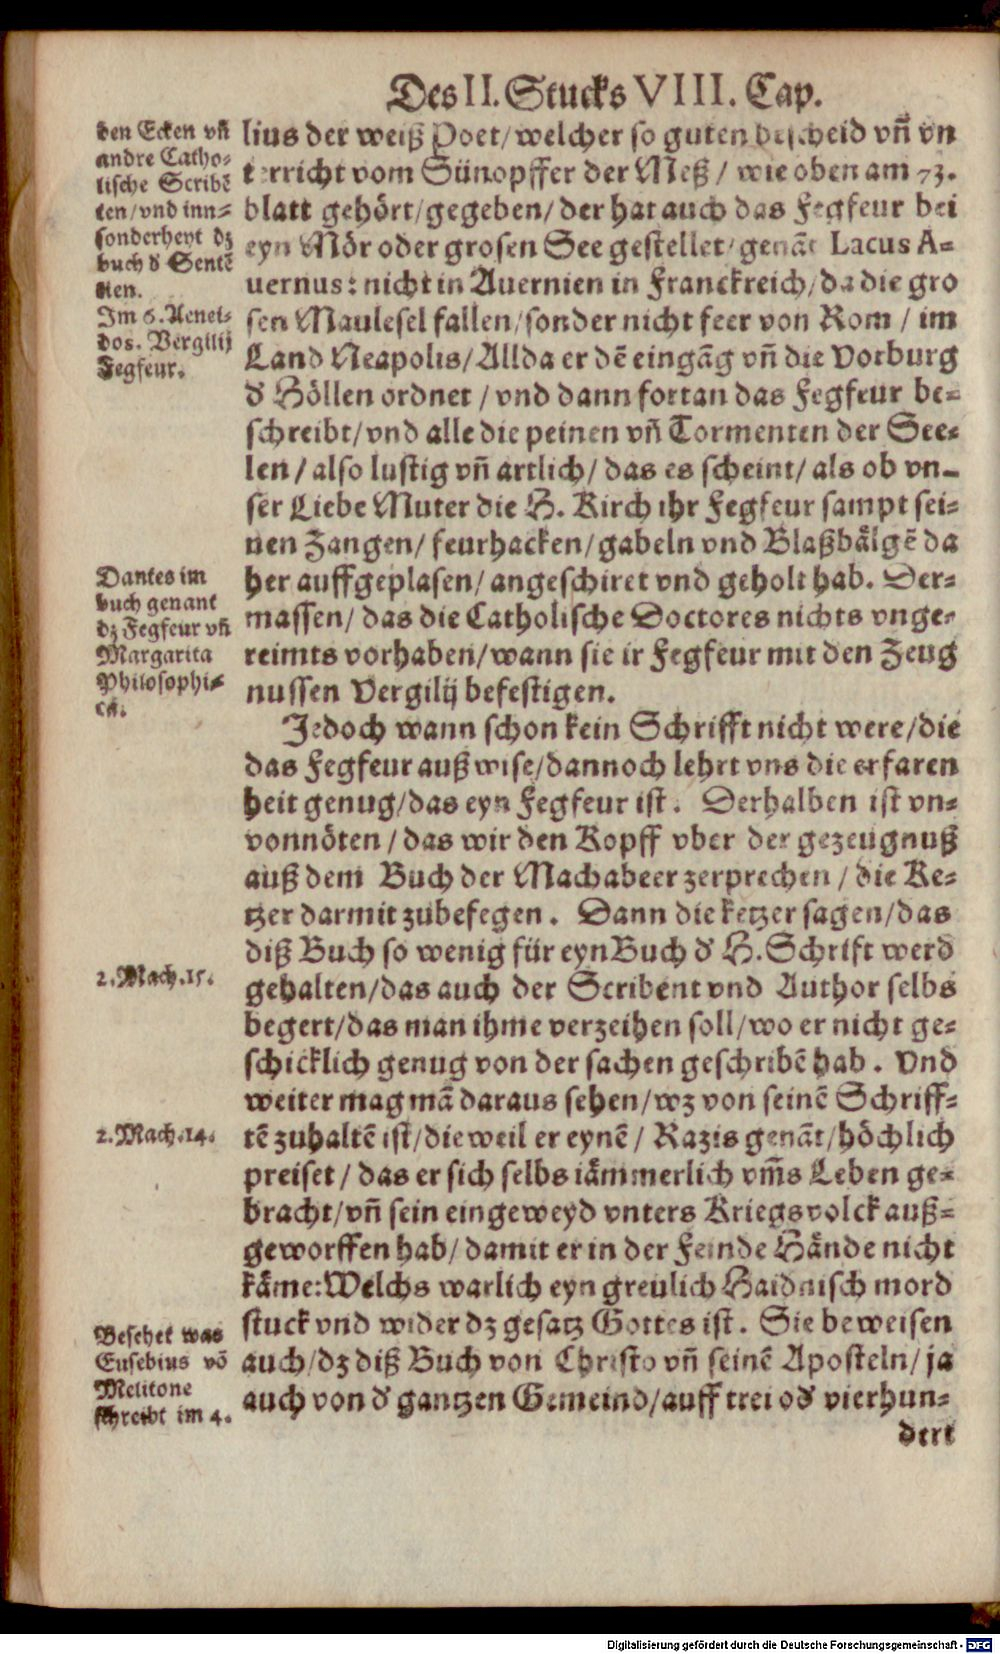 Des II. Stucks VIII. Cap.
den Ecken vñ
andre Catho-
lische Scribẽ
ten/vnd inn-
sonderheyt dz
buch d' Sentẽ
tien.
Im 6. Aenei-
dos. Vergilij
Fegfeur.
lius der weiß Poet/welcher so guten bescheid vñ vn
terricht vom Sünopffer der Meß/ wie oben am 73.
blatt gehört/gegeben/der hat auch das Fegfeur bei
eyn Mör oder grosen See gestellet/genãt Lacus A-
uernus: nicht in Auernien in Franckreich/da die gro
sen Maulesel fallen/sonder nicht feer von Rom / im
Land Neapolis/Allda er dẽ eingãg vñ die Vorburg
d' Höllen ordnet / vnd dann fortan das Fegfeur be-
schreibt/vnd alle die peinen vñ Tormenten der See-
len / also lustig vñ artlich/ das es scheint/ als ob vn-
ser Liebe Muter die H. Kirch ihr Fegfeur sampt sei-
nen Zangen/ feurhacken/gabeln vnd Blaßbälgẽ da
her auffgeplasen/ angeschiret vnd geholt hab. Der-
massen/ das die Catholische Doctores nichts vnge-
reimts vorhaben/wann sie ir Fegfeur mit den Zeug
nussen Vergilij befestigen.
Dantes im
buch genant
dz Fegfeur vñ
Margarita
Philosophi-
ca.
Jedoch wann schon kein Schrifft nicht were/die
das Fegfeur außwise/dannoch lehrt vns die erfaren
heit genug/das eyn Fegfeur ist. Derhalben ist vn-
vonnöten / das wir den Kopff vber der gezeugnuß
auß dem Buch der Machabeer zerprechen / die Ke-
tzer darmit zubefegen. Dann die ketzer sagen/das
diß Buch so wenig für eyn Buch d' H. Schrift werd
gehalten/das auch der Scribent vnd Author selbs
begert/das man ihme verzeihen soll/wo er nicht ge-
schicklich genug von der sachen geschribẽ hab. Vnd
weiter mag mã daraus sehen/wz von seinẽ Schriff-
tẽ zuhaltẽ ist/dieweil er eynẽ/ Razis genãt/höchlich
preiset / das er sich selbs iämmerlich vm̃s Leben ge-
bracht/vñ sein eingeweyd vnters Kriegsvolck auß-
geworffen hab/ damit er in der Feinde Hände nicht
käme: Welchs warlich eyn greulich Haidnisch mord
stuck vnd wider dz gesatz Gottes ist. Sie beweisen
auch/dz diß Buch von Christo vñ seinẽ Aposteln/ ja
auch von d' gantzen Gemeind/auff trei od' vierhun-
2.Mach.15.
2.Mach.14.
Besehet was
Eusebius võ
Melitone
schreibt im 4.
dert
Digitalisierung gefördert durch die Deutsche Forschungsgemeinschaft - DFG